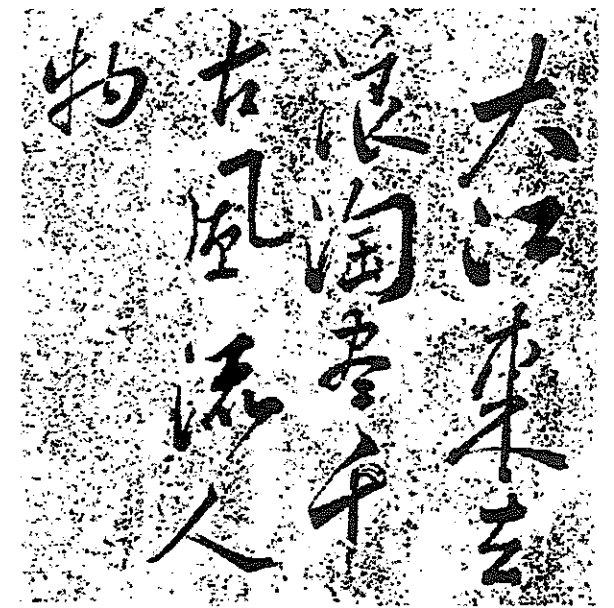 大江東去
浪淘盡千
古風流人
物